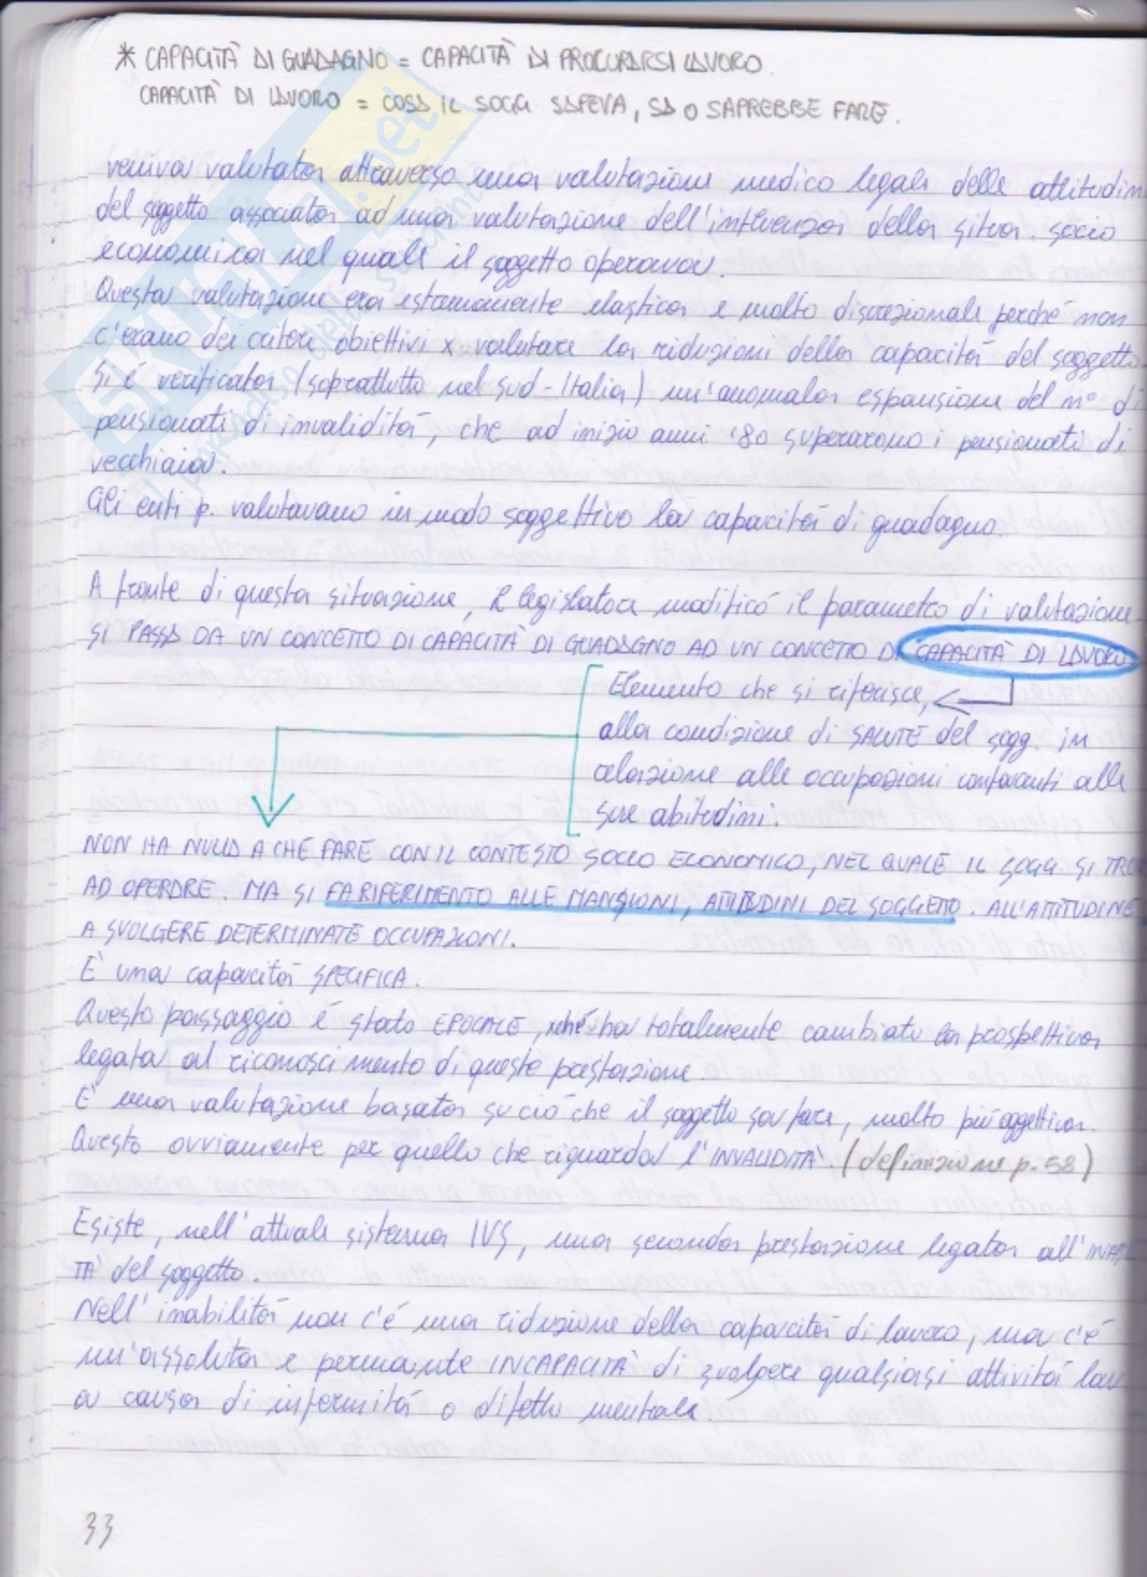 * CAPACITÀ DI GUADAGNO = CAPACITÀ DI PROCURARSI LAVORO
CAPACITÀ DI LAVORO = COSA IL SOGG SAPEVA, SA O SAPREBBE FARE.
veniva valutata attraverso una valutazione medico legale delle attitudin
del soggetto associata ad una valutazione dell'influenza della situa. socio
economica nel quale il soggetto operava.
Questa valutazione era estremamente elastica e molto discrezionale perché non
c'erano dei criteri obiettivi x valutare la riduzioni della capacità del soggetto.
Si è verificata (soprattutto nel sud-Italia) un'anomala espansione del n° di
pensionati di invalidità, che ad inizio anni '80 superarono i pensionati di
vecchiaia.
Gli enti p. valutavano in modo soggettivo la capacità di guadagno.
A fronte di questa situazione, il legislatore modificò il parametro di valutazione
SI PASSA DA UN CONCETTO DI CAPACITÀ DI GUADAGNO AD UN CONCETTO DI CAPACITÀ DI LAVORO
Elemento che si riferisce,
alla condizione di SALUTE del sogg. in
relazione alle occupazioni confacenti alle
sue abitudini.
NON HA NULLA A CHE FARE CON IL CONTESTO SOCIO ECONOMICO, NEL QUALE IL SOGG SI TRO
AD OPERARE. MA SI FA RIFERIMENTO ALLE MANSIONI, ATTITUDINI DEL SOGGETTO. ALL'ATTITUDINE
A SVOLGERE DETERMINATE OCCUPAZIONI.
È una capacità SPECIFICA.
Questo passaggio è stato EPOCALE, xché ha totalmente cambiato la prospettiva
legata al riconoscimento di queste prestazione.
È una valutazione basata su ciò che il soggetto sa fare, molto più oggettiva.
Questo ovviamente per quello che riguarda l'INVALIDITÀ. (definizione p. 58)
Esiste, nell'attuale sistema IVS, una seconda prestazione legata all'INABI
TÀ del soggetto.
Nell'inabilità non c'è una riduzione della capacità di lavoro, ma c'è
un'assoluta e permanente INCAPACITÀ di svolgere qualsiasi attività lav
a causa di infermità o difetto mentale.
33